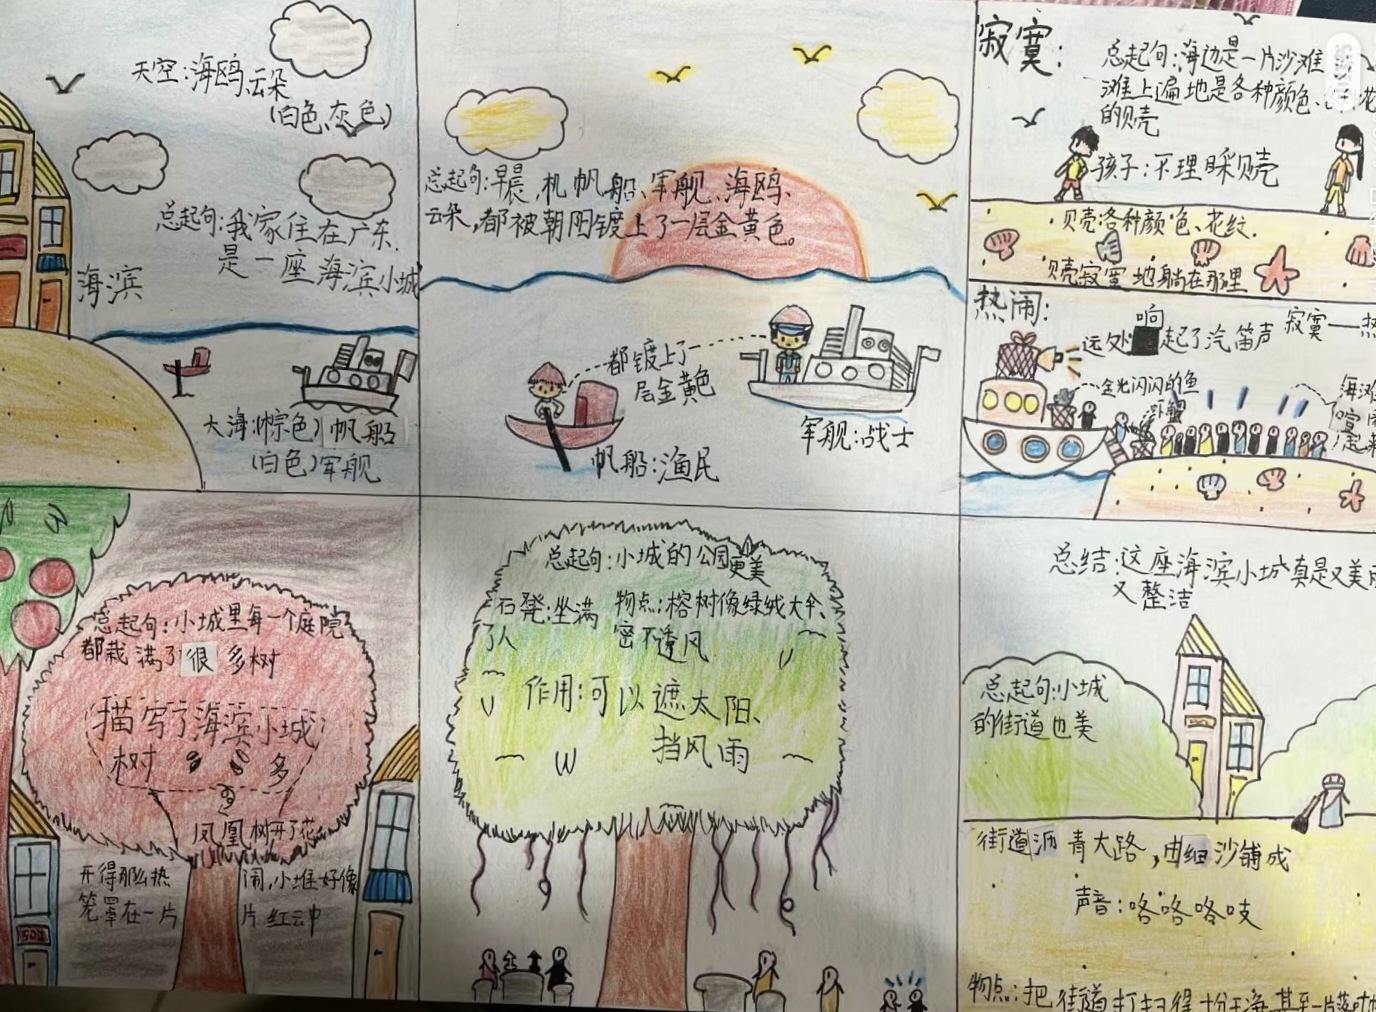 天空:海鸥、云朵
(白色、灰色)
总起句:我家住在广东,
是一座海滨小城
海滨
大海:(棕色)帆船
(白色)军舰
总起句:早晨,机帆船、军舰、海鸥、
云朵,都被朝阳镀上了一层金黄色。
都镀上了一
层金黄色
帆船:渔民
军舰:战士
寂寞:
总起句:海边是一片沙滩
滩上遍地是各种颜色、
的贝壳
孩子:不理睬贝壳
贝壳:各种颜色、花纹.
贝壳寂寞地躺在那里
热闹:
响
远处 起了汽笛声
寂寞——热
金光闪闪的鱼
海滩
喧闹
起来
总起句:小城里每一个庭院
都栽满了很多树
描写了海滨小城
树 多
凤凰树开了花
开得那么热闹,小
好像
笼罩在一片片红云中
502
总起句:小城的公园更美
石凳:坐满
了人
物点:榕树像绿绒大伞、
密不透风
作用:可以遮太阳、
挡风雨
总结:这座海滨小城真是又美
又整洁
总起句:小城
的街道也美
街道沥青大路,由细沙铺成
声音:咯咯咯吱
物点:把街道打扫得十分干净,甚至一片落叶